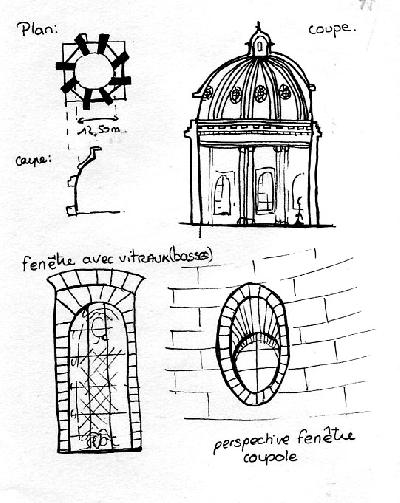 Plan:
coupe.
12,50m
coupe:
fenêtre avec vitraux (basses)
perspective fenêtre
coupole